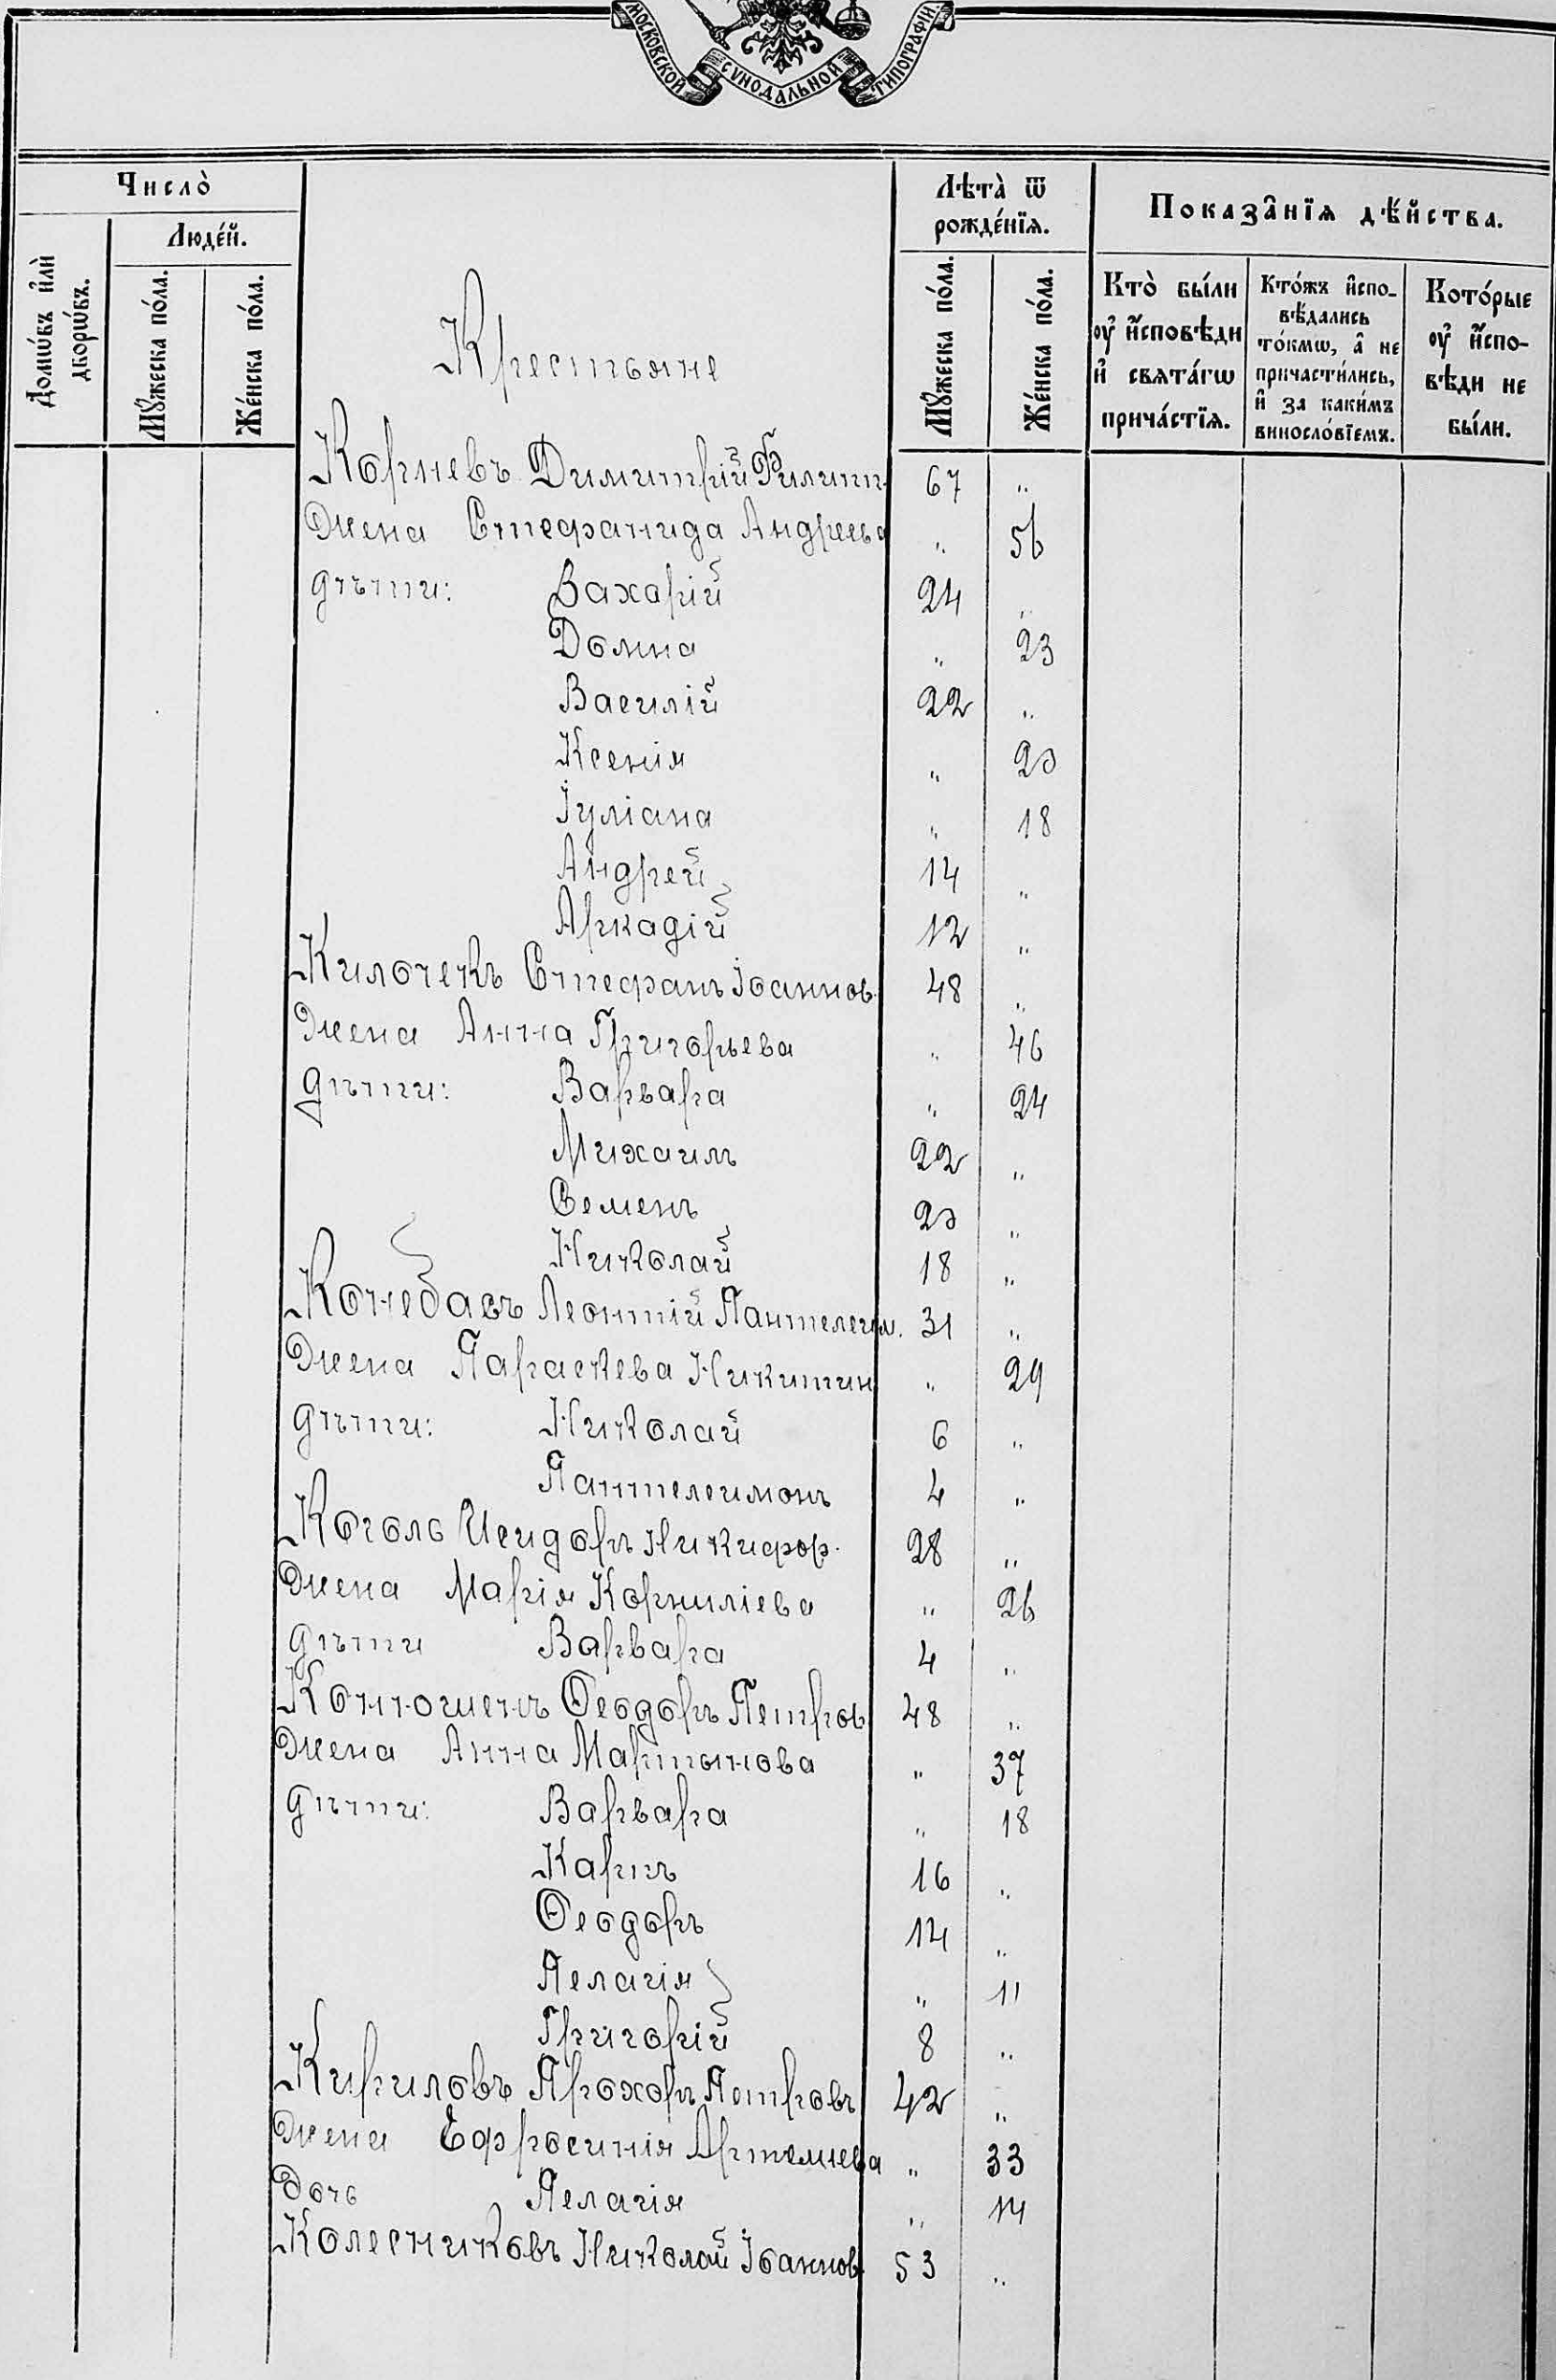 МОСКОВСКОЙ СѴНОДАЛЬНОЙ ТИПОГРАФІИ.
Число̀
Людéй.
Домѡ́въ и҆лѝ дворѡ́въ.
Мꙋ́жеска пóла.
Жéнска пóла.
Лѣта̀ ѿ рождéнїѧ.
Мꙋ́жеска пóла.
Жéнска пóла.
Показа̂нїѧ дѣ́йства.
Кто̀ бы́ли ᲂу҆ и҆́сповѣди и҆ свѧтáгѡ причáстїѧ.
Кто́жъ и҆спо-
вѣ́дались
то́кмѡ, а҆ не
причасти́лись,
и҆ за каки́мъ
винословїемъ.
Котóрые
ᲂу҆ и҆́спо-
вѣди не
бы́ли.
Крестьяне
Корневъ Димитрій Филипп. 67 "
Жена Стефанида Андреева " 56
дѣти: Захарій 24 "
Домна " 23
Василій 22 "
Ксенія " 20
Іуліана " 18
Андрей 14 "
Аркадій 12 "
Килочекъ Стефанъ Іоаннов. 48 "
Жена Анна Григорьева " 46
дѣти: Варвара " 24
Михаилъ 22 "
Семенъ 20 "
Николай 18 "
Конебасъ Леонтій Пантелеим. 31 "
Жена Параскева Никитин " 29
дѣти: Николай 6 "
Пантелеимонъ 4 "
Коголь Исидоръ Никифор. 28 "
Жена Марія Корниліева " 26
дѣти Варвара 4 "
Конношенъ Ѳеодоръ Петров 48 "
Жена Анна Мартынова " 37
дѣти: Варвара " 18
Карпъ 16 "
Ѳеодоръ 14 "
Пелагія " 11
Григорій 8 "
Кириловъ Прохоръ Петровъ 42 "
Жена Ефросинія Артемиева " 33
дочь Пелагія " 14
Колесниковъ Николай Іоаннов. 53 "